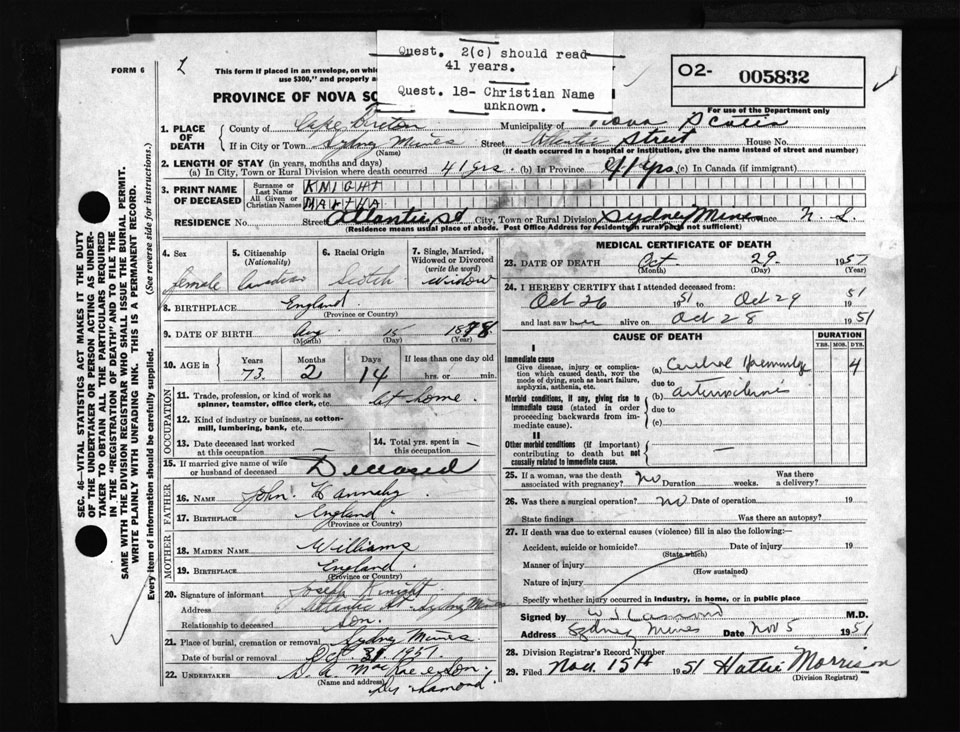 Quest. 2(c) should read
41 years.
Quest. 18- Christian Name
unknown.
FORM 6
This form if placed in an envelope, on whic
use $300," and property a
PROVINCE OF NOVA SC
O2- 005832
For use of the Department only
SEC. 46—VITAL STATISTICS ACT MAKES IT THE DUTY
OF THE UNDERTAKER OR PERSON ACTING AS UNDER-
TAKER TO OBTAIN ALL THE PARTICULARS REQUIRED
IN THE "REGISTRATION OF DEATH" AND TO FILE THE
SAME WITH THE DIVISION REGISTRAR WHO SHALL ISSUE THE BURIAL PERMIT.
WRITE PLAINLY WITH UNFADING INK. THIS IS A PERMANENT RECORD.
Every item of information should be carefully supplied. (See reverse side for instructions.)
1. PLACE OF DEATH
County of Cape Breton Municipality of Nova Scotia
If in City or Town Sydney Mines Street Street House No.
(Name) (If death occurred in a hospital or institution, give the name instead of street and number)
2. LENGTH OF STAY (in years, months and days)
(a) In City, Town or Rural Division where death occurred 41 yrs. (b) In Province 41 yrs (c) In Canada (if immigrant)
3. PRINT NAME OF DECEASED
Surname or Last Name KNIGHT
All Given or Christian Names MARTHA
RESIDENCE No. Street Atlantic st City, Town or Rural Division Sydney Mines Province N. S.
(Residence means usual place of abode. Post Office Address for residents in rural parts not sufficient)
4. Sex female
5. Citizenship (Nationality) Canadian
6. Racial Origin Scotch
7. Single, Married, Widowed or Divorced (write the word) Widow
8. BIRTHPLACE England
(Province or Country)
9. DATE OF BIRTH Aug 15 1878
(Month) (Day) (Year)
10. AGE in Years 73 Months 2 Days 14 If less than one day old
hrs. or min.
OCCUPATION
11. Trade, profession, or kind of work as spinner, teamster, office clerk, etc. at home
12. Kind of industry or business, as cotton-mill, lumbering, bank, etc.
13. Date deceased last worked at this occupation
14. Total yrs. spent in this occupation —
15. If married give name of wife or husband of deceased Deceased
FATHER
16. NAME John
17. BIRTHPLACE England
(Province or Country)
MOTHER
18. MAIDEN NAME Williams
19. BIRTHPLACE England
(Province or Country)
20. Signature of informant Joseph Knight
Address Atlantic St Sydney Mines
Relationship to deceased Son.
21. Place of burial, cremation or removal Sydney Mines
Date of burial or removal Oct 31. 1951
22. UNDERTAKER
(Name and address)
MEDICAL CERTIFICATE OF DEATH
23. DATE OF DEATH Oct. 29. 1951
(Month) (Day) (Year)
24. I HEREBY CERTIFY that I attended deceased from:
Oct 26 1951 to Oct 29 1951
and last saw her alive on Oct 28 1951
CAUSE OF DEATH
DURATION
YRS. MOS. DYS.
I
Immediate cause
Give disease, injury or complication which caused death, not the mode of dying, such as heart failure, asphyxia, asthenia, etc.
(a) Cerebral Haemorrhage 4
due to
Morbid conditions, if any, giving rise to immediate cause (stated in order proceeding backwards from immediate cause).
(b) arteriosclerosis
due to
(c)
II
Other morbid conditions (if important) contributing to death but not causally related to immediate cause. —
25. If a woman, was the death associated with pregnancy? No Duration weeks. Was there a delivery?
26. Was there a surgical operation? no Date of operation 19
State findings Was there an autopsy?
27. If death was due to external causes (violence) fill in also the following:—
Accident, suicide or homicide? Date of injury 19
(State which)
Manner of injury
(How sustained)
Nature of injury
Specify whether injury occurred in industry, in home, or in public place
Signed by M.D.
Address Sydney Mines Date Nov 5 1951
28. Division Registrar's Record Number
29. Filed Nov. 15th 1951 Hattie Morrison
(Division Registrar)